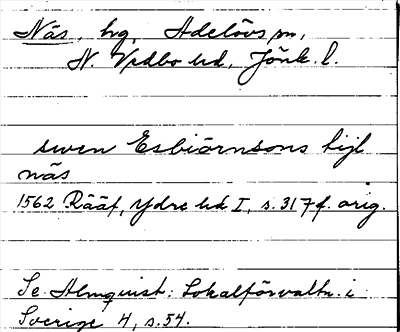 Näs, hg, Adelövs sn,
N. Vedbo hd, Jönk. l.
swen Esbiörnsons tijl
näs
1562 Rääf, Ydre hd I, s. 317 f. orig.
Se Almquist: Lokalförvaltn. i
Sverige 4, s. 54.